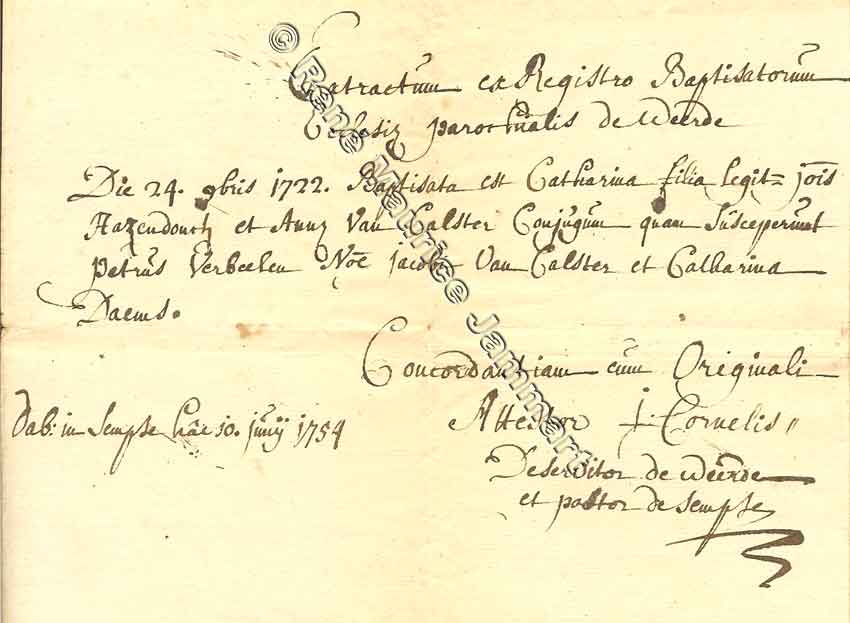 Extractum ex Registro Baptisatorum
Ecclesiæ parochialis de weerde
Die 24. 9bris 1722. Baptisata est Catharina filia legit= jois
Hazendonck et Annæ Van Calster Conjugum quam susceperunt
petrus Verbeelen Nõe jacobi Van Calster et Catharina
Daems.
Concordantiam cum Originali
Attestor j. Cornelis
Dab: in Sempse hâc 10. junij 1754
Deservitor de weerde
et pastor de Sempse
© René Maurice Jammart